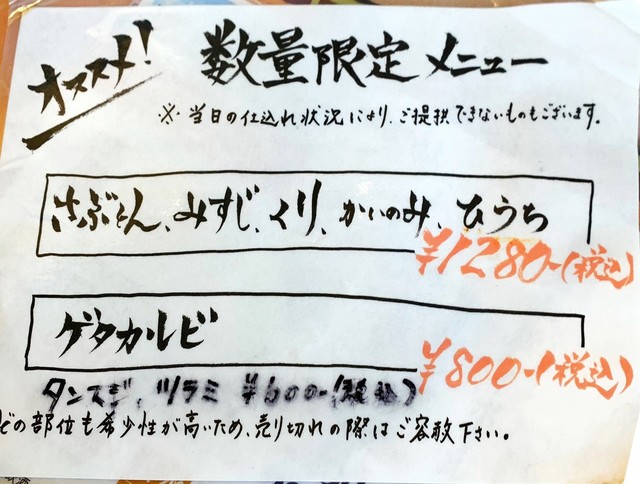 オススメ! 数量限定メニュー
※当日の仕込れ状況により、ご提供できないものもございます。
ざぶとん、みすじ、くり、かいのみ、ひうち
¥1280-(税込)
ゲタカルビ
¥800-(税込)
タンスジ、ツラミ ¥600-(税込)
どの部位も希少性が高いため、売り切れの際はご容赦下さい。